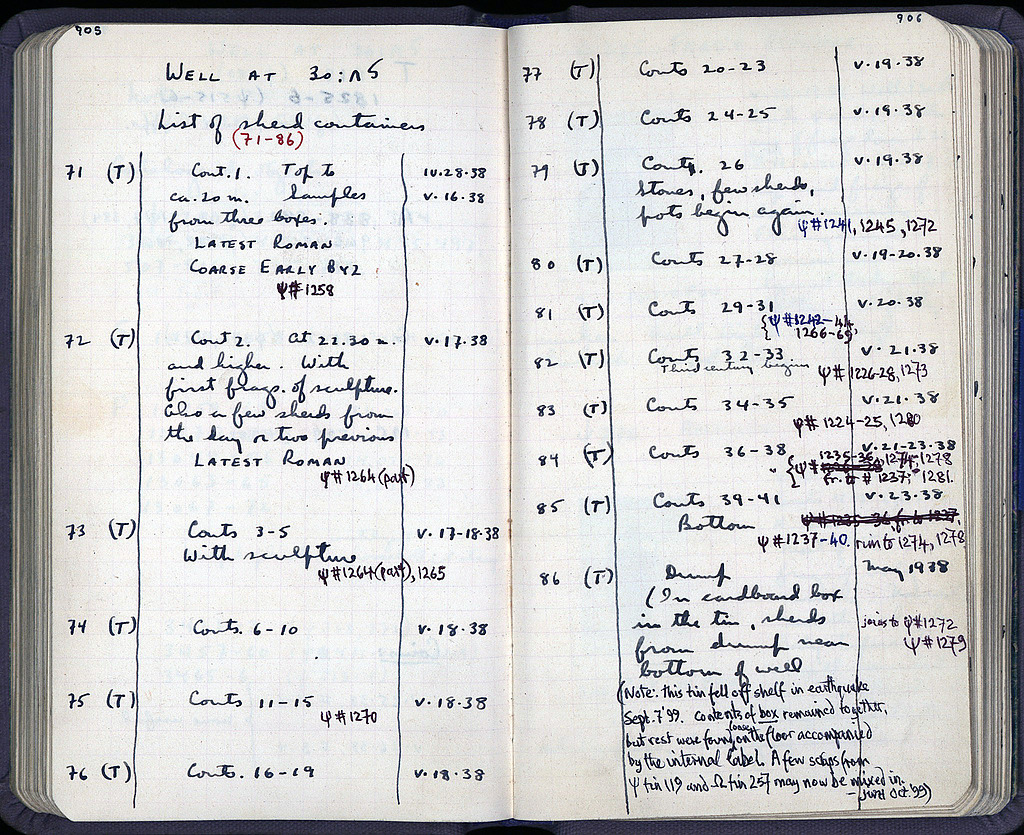 905
WELL AT 30:ΛS
List of sherd containers
(71-86)
71 (T) Cont. 1. Top to IV.28.38
ca. 20 m. Samples V.16.38
from three boxes.
LATEST ROMAN
COARSE EARLY BYZ
Ψ# 1258
72 (T) Cont 2. At 22.30 m. V.17.38
and higher. With
first frags. of sculpture.
Also a few sherds from
the day or two previous
LATEST ROMAN
Ψ# 1264 (part)
73 (T) Conts 3-5 V.17-18.38
With sculpture
Ψ# 1264 (part), 1265
74 (T) Conts. 6-10 V.18.38
75 (T) Conts 11-15 V.18.38
Ψ# 1270
76 (T) Conts. 16-19 V.18.38
906
77 (T) Conts 20-23 V.19.38
78 (T) Conts 24-25 V.19.38
79 (T) Cont. 26 V.19.38
Stones, few sherds,
pots begin again.
Ψ#1241, 1245, 1272
80 (T) Conts 27-28 V.19-20.38
81 (T) Conts 29-31 V.20.38
{Ψ#1242-44,
1266-69
82 (T) Conts 32-33 V.21.38
Third century begins Ψ# 1226-28, 1273
83 (T) Conts 34-35 V.21.38
Ψ# 1224-25, 1280
84 (T) Conts 36-38 V.21-23.38
" {Ψ# 1235-36, 1274-1278
fr. to # 1237; 1281.
85 (T) Conts 39-41 V.23.38
Bottom Ψ# 1235-36, fr. to 1237,
Ψ#1237-40. rim to 1274, 1278
86 (T) Dump May 1938
(In cardboard box
in the tin, sherds joins to Ψ#1272
from dump near Ψ#1279
bottom of well
(Note: this tin fell off shelf in earthquake
Sept. 7 '99. Contents of box remained together,
but rest were found loose on the floor accompanied
by the internal label. A few scraps from
Ψ tin 119 and Ω tin 257 may now be mixed in.
Oct. '99)